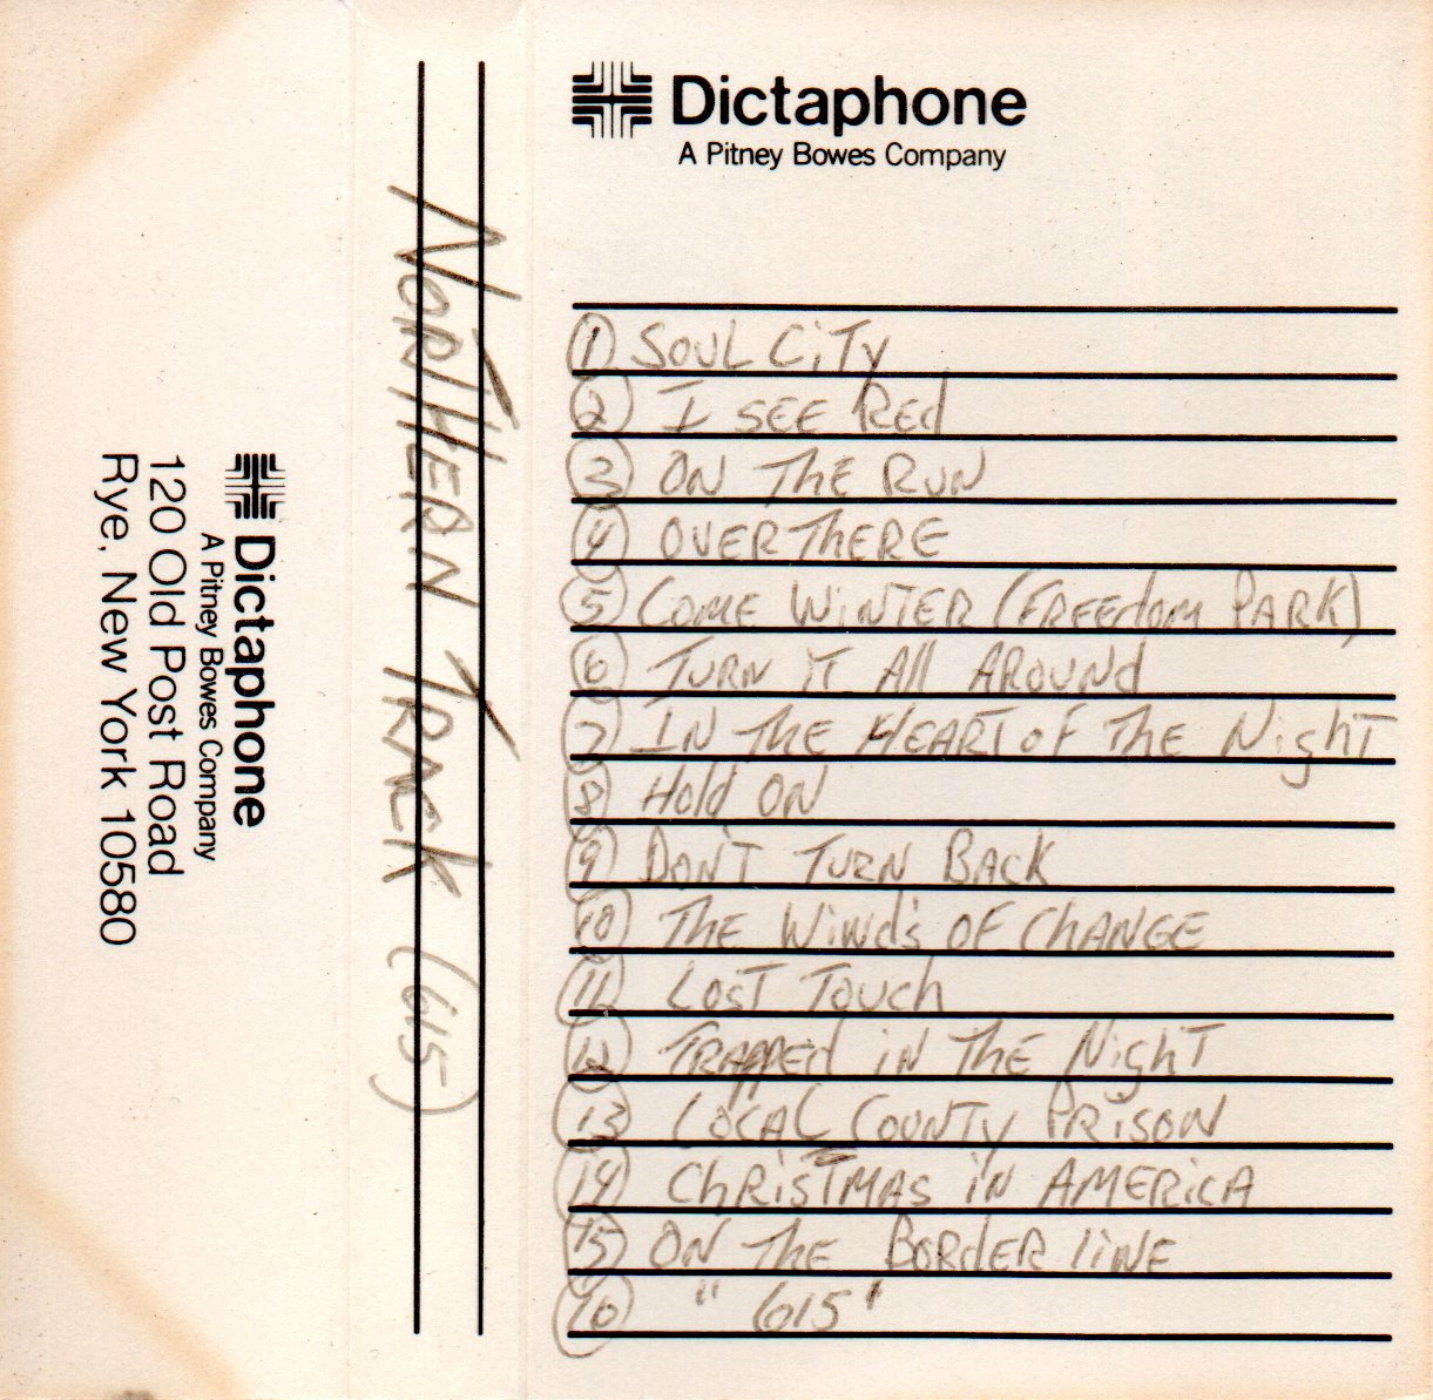 Dictaphone
A Pitney Bowes Company
120 Old Post Road
Rye, New York 10580
NORTHERN TRACK (615)
Dictaphone
A Pitney Bowes Company
1 SOUL CiTy
2 I SEE REd
3 ON ThE RUN
4 OVER ThERE
5 COME WiNTER (FREEdom PARK)
6 TURN iT All AROUNd
7 IN ThE HEART oF ThE NighT
8 Hold ON
9 DON'T TURN BACK
10 ThE WiNds OF ChANGE
11 LOST Touch
12 TRAPPEd iN ThE NighT
13 LOCAL COUNTy PRiSON
14 ChRiSTMAS iN AMERiCA
15 ON ThE BORdER liNE
16 "615"